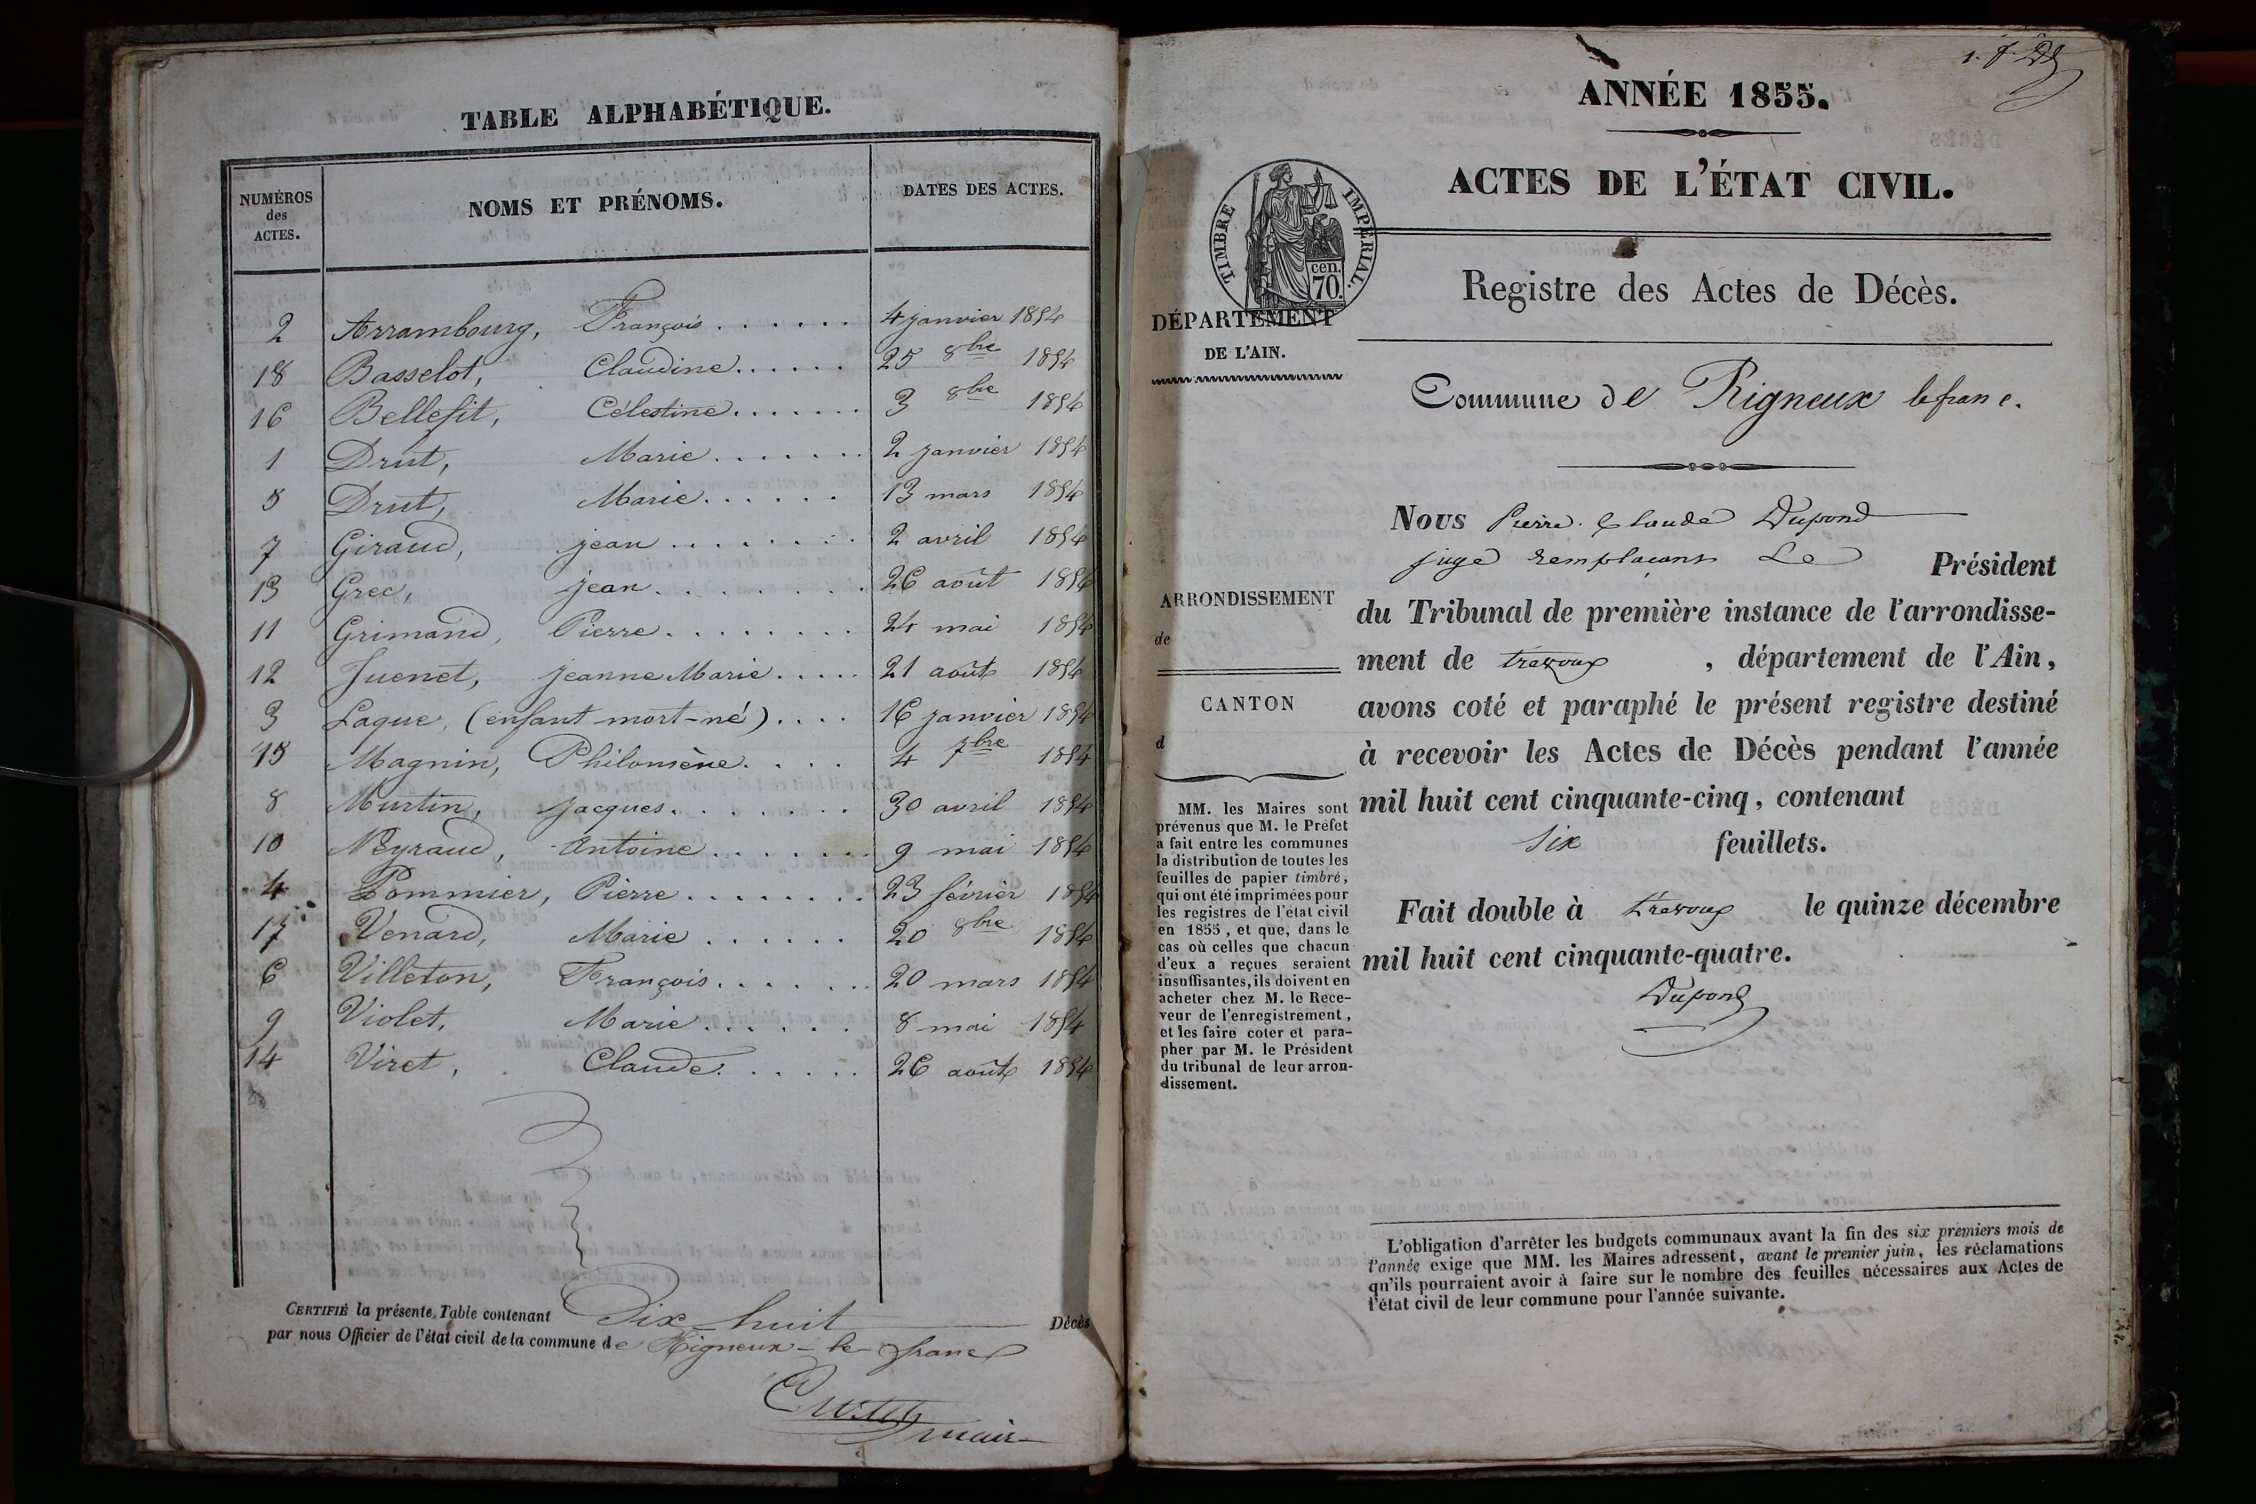 TABLE ALPHABÉTIQUE.
NUMÉROS des ACTES. NOMS ET PRÉNOMS. DATES DES ACTES.
2 Arrambourg, François 4 janvier 1854
18 Basselot, Claudine 25 8bre 1854
16 Bellefit, Célestine 3 8bre 1854
1 Drut, Marie 2 janvier 1854
5 Drut, Marie 13 mars 1854
7 Giraud, jean 2 avril 1854
13 Grec, jean 26 août 1854
11 Grimand, Pierre 24 mai 1854
12 Juenet, jeanne Marie 21 août 1854
3 Laque, (enfant mort-né) 16 janvier 1854
15 Magnin, Philomène 4 7bre 1854
8 Murtin, jacques 30 avril 1854
10 Neyraud, Antoine 9 mai 1854
4 Pommier, Pierre 23 février 1854
17 Venard, Marie 20 8bre 1854
6 Villeton, François 20 mars 1854
9 Violet, Marie 8 mai 1854
14 Viret, Claude 26 août 1854
CERTIFIÉ la présente Table contenant Dix-huit Décès
par nous Officier de l'état civil de la commune de Rigneux-le-franc
maire
ANNÉE 1855.
ACTES DE L'ÉTAT CIVIL.
TIMBRE IMPÉRIAL.
cen.
70.
Registre des Actes de Décès.
DÉPARTEMENT
DE L'AIN.
Commune de Rigneux lefranc.
Nous Pierre Claude Dupond
juge remplaçant Le Président
du Tribunal de première instance de l'arrondisse-
ment de trévoux, département de l'Ain,
avons coté et paraphé le présent registre destiné
à recevoir les Actes de Décès pendant l'année
mil huit cent cinquante-cinq, contenant
six feuillets.
Fait double à trévoux le quinze décembre
mil huit cent cinquante-quatre.
Dupond
ARRONDISSEMENT
de
CANTON
d
MM. les Maires sont
prévenus que M. le Préfet
a fait entre les communes
la distribution de toutes les
feuilles de papier timbré,
qui ont été imprimées pour
les registres de l'état civil
en 1855, et que, dans le
cas où celles que chacun
d'eux a reçues seraient
insuffisantes, ils doivent en
acheter chez M. le Rece-
veur de l'enregistrement,
et les faire coter et para-
pher par M. le Président
du tribunal de leur arron-
dissement.
L'obligation d'arrêter les budgets communaux avant la fin des six premiers mois de
l'année exige que MM. les Maires adressent, avant le premier juin, les réclamations
qu'ils pourraient avoir à faire sur le nombre des feuilles nécessaires aux Actes de
l'état civil de leur commune pour l'année suivante.